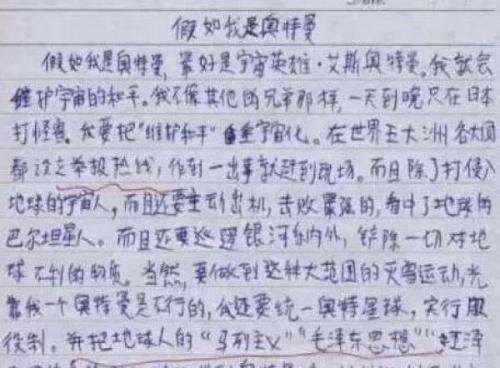 假如我是奥特曼
假如我是奥特曼,最好是宇宙英雄·艾斯奥特曼。我就会
维护宇宙的和平。我不像其他的兄弟那样,一天到晚只在日本
打怪兽。我要把"维护和平"全宇宙化。在世界五大洲各大国
都设立举报热线,作到一出事就赶到现场。而且除了打侵入
地球的宇宙人,而且还要主动出机,去收最强的,看中了地球的
巴尔坦星人。而且还要巡逻银河系内外,铲除一切对地
球不利的物质。当然,要做到这种大范围的灭害运动,光
靠我一个奥特曼是不行的,我还要统一奥特星球,实行服
役制。并把地球人的"马列主义""毛泽东思想""